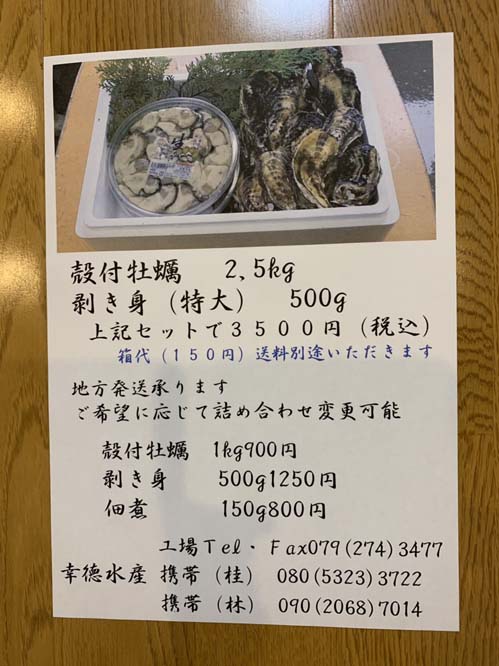 殻付牡蠣　2,5kg
剥き身（特大）　500g
上記セットで3500円（税込）
箱代（150円）送料別途いただきます
地方発送承ります
ご希望に応じて詰め合わせ変更可能
殻付牡蠣　1kg900円
剥き身　500g1250円
佃煮　150g800円
工場Tel・Fax079(274)3477
幸徳水産 携帯（桂）　080(5323)3722
携帯（林）　090(2068)7014